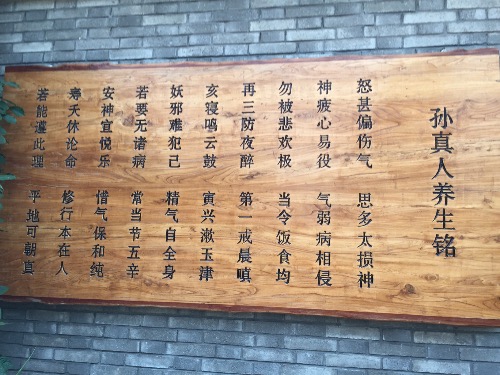 孙真人养生铭
怒甚偏伤气 思多太损神
神疲心易役 气弱病相侵
勿被悲欢极 当令饭食均
再三防夜醉 第一戒晨嗔
亥寝鸣云鼓 寅兴漱玉津
妖邪难犯己 精气自全身
若要无诸病 常当节五辛
安神宜悦乐 惜气保和纯
寿夭休沦命 修行本在人
若能遵此理 平地可朝真